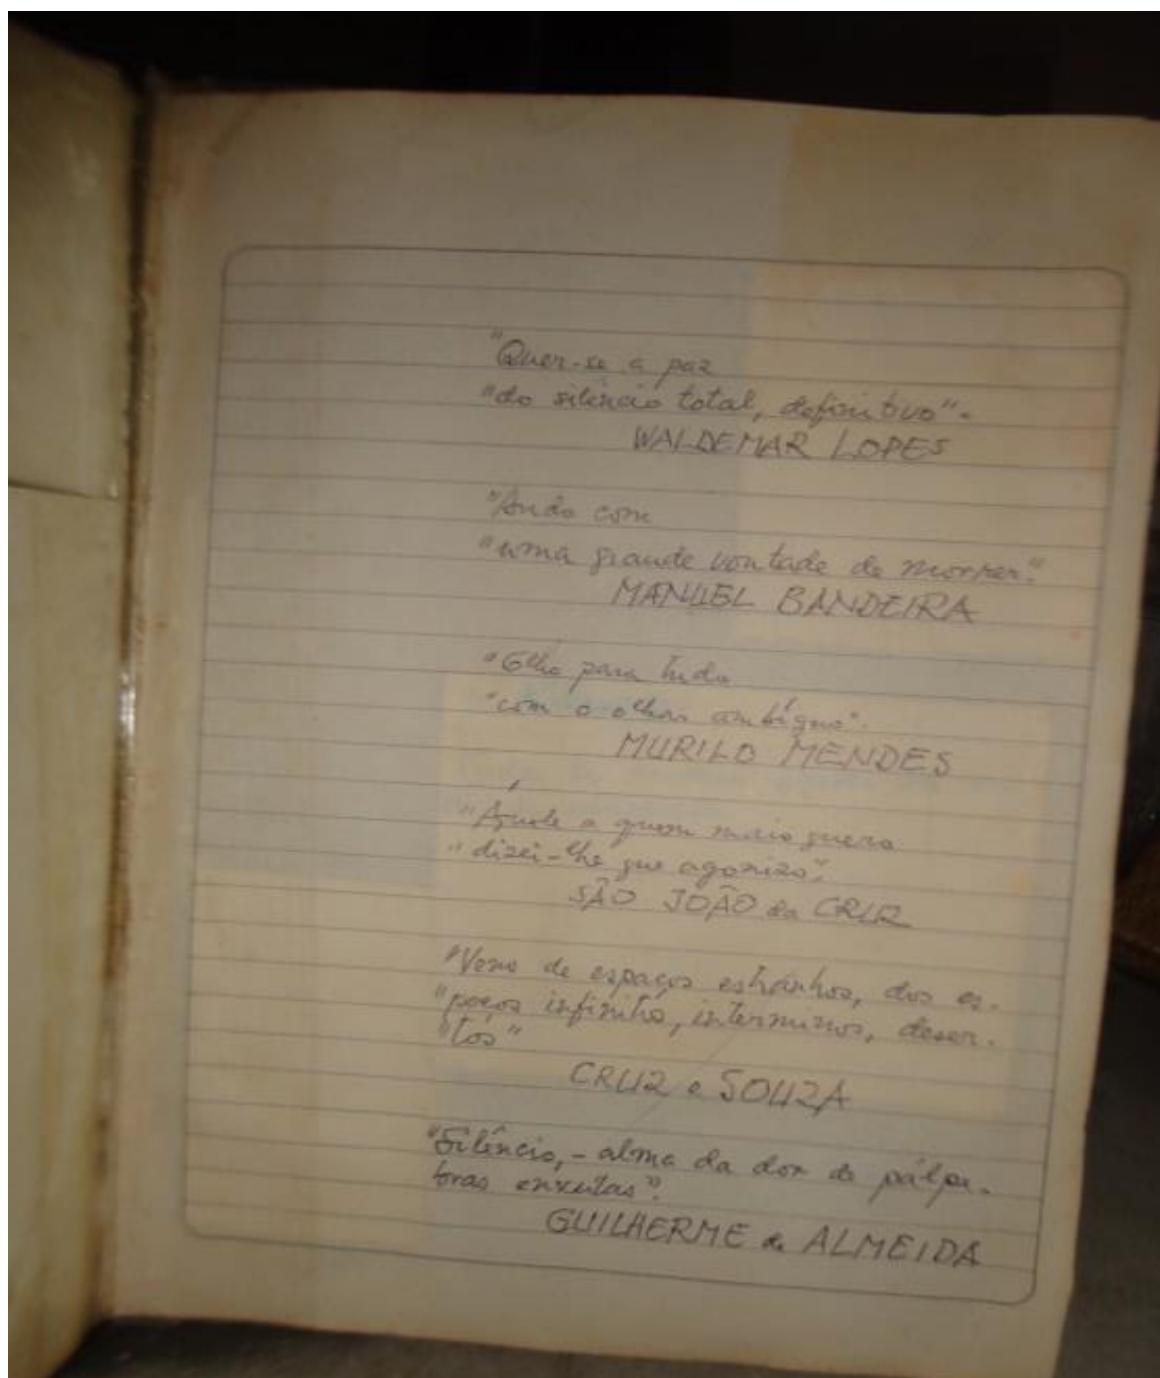 "Quer-se a paz
"do silêncio total, definitivo".
WALDEMAR LOPES
"Ando com
"uma grande vontade de morrer."
MANUEL BANDEIRA
"Olho para tudo
"com o olhar ambíguo".
MURILO MENDES
"Àquele a quem mais quero
"dizei-lhe que agonizo".
SÃO JOÃO da CRUZ
"Venho de espaços estranhos, dos es-
"paços infinitos, intérminos, deser-
"tos"
CRUZ e SOUZA
"Silêncio, - alma da dor de pálpe-
bras enxutas".
GUILHERME de ALMEIDA